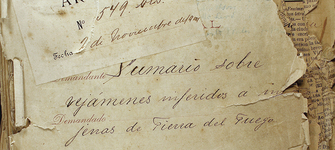 AR
Nº 549 bis.
Fecha 2 de Noviembre de
L
Demandante Sumario sobre
vejámenes inferidos a in
Demandado
fenas de Tierra del Fuego